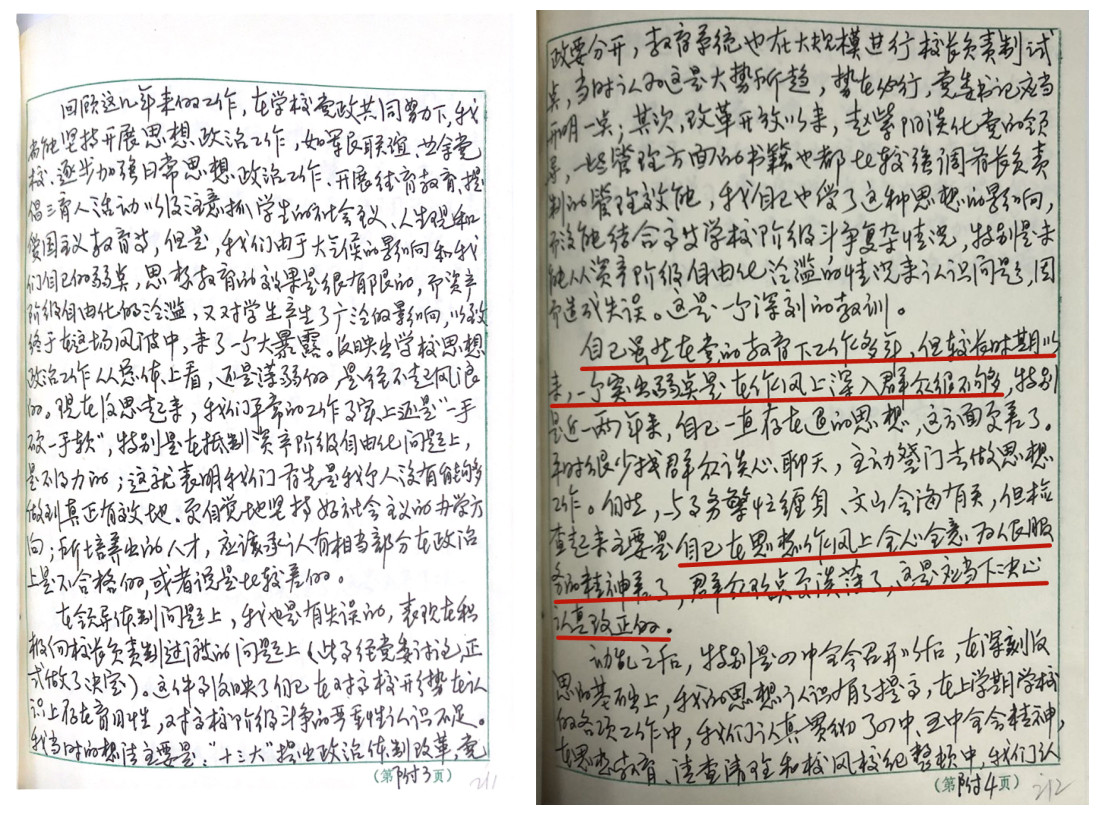 回顾这几年来的工作，在学校党政共同努力下，我
尚能坚持开展思想政治工作，如军民联谊、业余党
校、逐步加强日常思想政治工作、开展德育教育、提
倡三育人活动以及注意抓学生的社会主义、人生观和
爱国主义教育等，但是，我们由于大气候的影响和我
们自己的弱点，思想教育的效果是很有限的，而资产
阶级自由化的泛滥，又对学生产生了广泛的影响，以致
终于在这场风波中，来了一个大暴露。反映出学校思想
政治工作从总体上看，还是薄弱的，是经不起风浪
的。现在反思起来，我们平常的工作事实上还是“一手
硬一手软”，特别是在抵制资产阶级自由化问题上，
是不得力的；这就表明我们首先是我个人没有能够
做到真正有效地、更自觉地坚持好社会主义的办学方
向；所培养出的人才，应该承认有相当部分在政治
上是不合格的，或者说是比较差的。
在领导体制问题上，我也是有失误的，表现在积
极向校长负责制过渡的问题上（此事经党委讨论，正
式做了决定）。这件事反映了自己在对高校形势在认
识上存在盲目性，对高校阶级斗争的严重性认识不足。
我当时的想法主要是：“十三大”提出政治体制改革，党
（第附3页）
211
政要分开，教育系统也在大规模进行校长负责制试
点，当时认为这是大势所趋，势在必行，党委书记应当
开明一点；其次，改革开放以来，赵紫阳淡化党的领
导，一些管理方面的书籍也都比较强调首长负责
制的管理效能，我自己也受了这种思想的影响，
而没能结合高等学校阶级斗争复杂情况，特别是未
能从资产阶级自由化泛滥的情况来认识问题，因
而造成失误。这是一个深刻的教训。
自己虽然在党的教育下工作多年，但较长时期以
来，一个突出弱点是在作风上深入群众很不够，特别
是近一两年来，自己一直存在退的思想，这方面更差了。
平时很少找群众谈心、聊天，主动登门去做思想
工作。自然，与事务繁忙缠身、文山会海有关，但检
查起来主要是自己在思想作风上全心全意为人民服
务的精神差了，群众观点更淡薄了，这是应当下决心
认真改正的。
动乱之后，特别是四中全会召开以后，在深刻反
思的基础上，我的思想认识有了提高，在上学期学校
的各项工作中，我们认真贯彻了四中、五中全会精神，
在思想教育、清查清理和校风校纪整顿中，我们认
（第附4页）
212